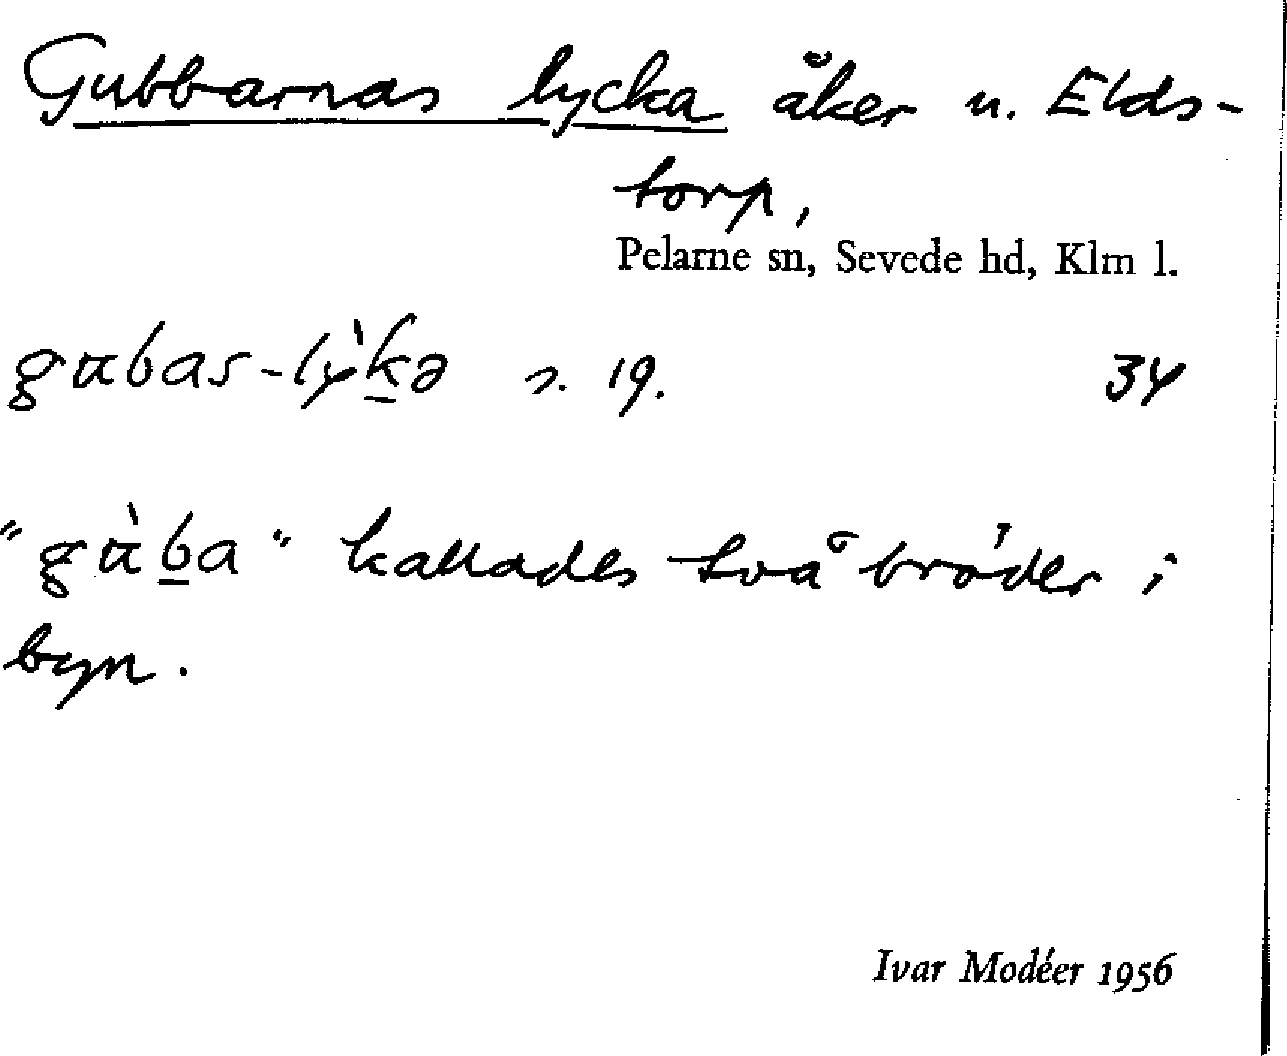 Gubbarnas lycka åker u. Elds-
torp,
Pelarne sn, Sevede hd, Klm l.
gubas-lỳk̲ə s. 19. 34
"gùb̲a" kallades två bröder i
byn.
Ivar Modéer 1956